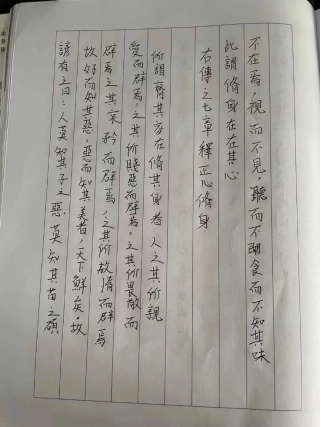 不在焉，視而不見，聽而不聞食而不知其味
此謂脩身在在其心
右傳之七章釋正心脩身
所謂齊其家在脩其身者人之其所親
愛而群焉，之其所賤惡而群焉，之其所畏敬而
群焉之其哀矜而群焉，之其所敖惰而群焉
故好而知其惡，惡而知其美者，天下鮮矣。故
諺有之曰：人莫知其子之惡，莫知其苗之碩